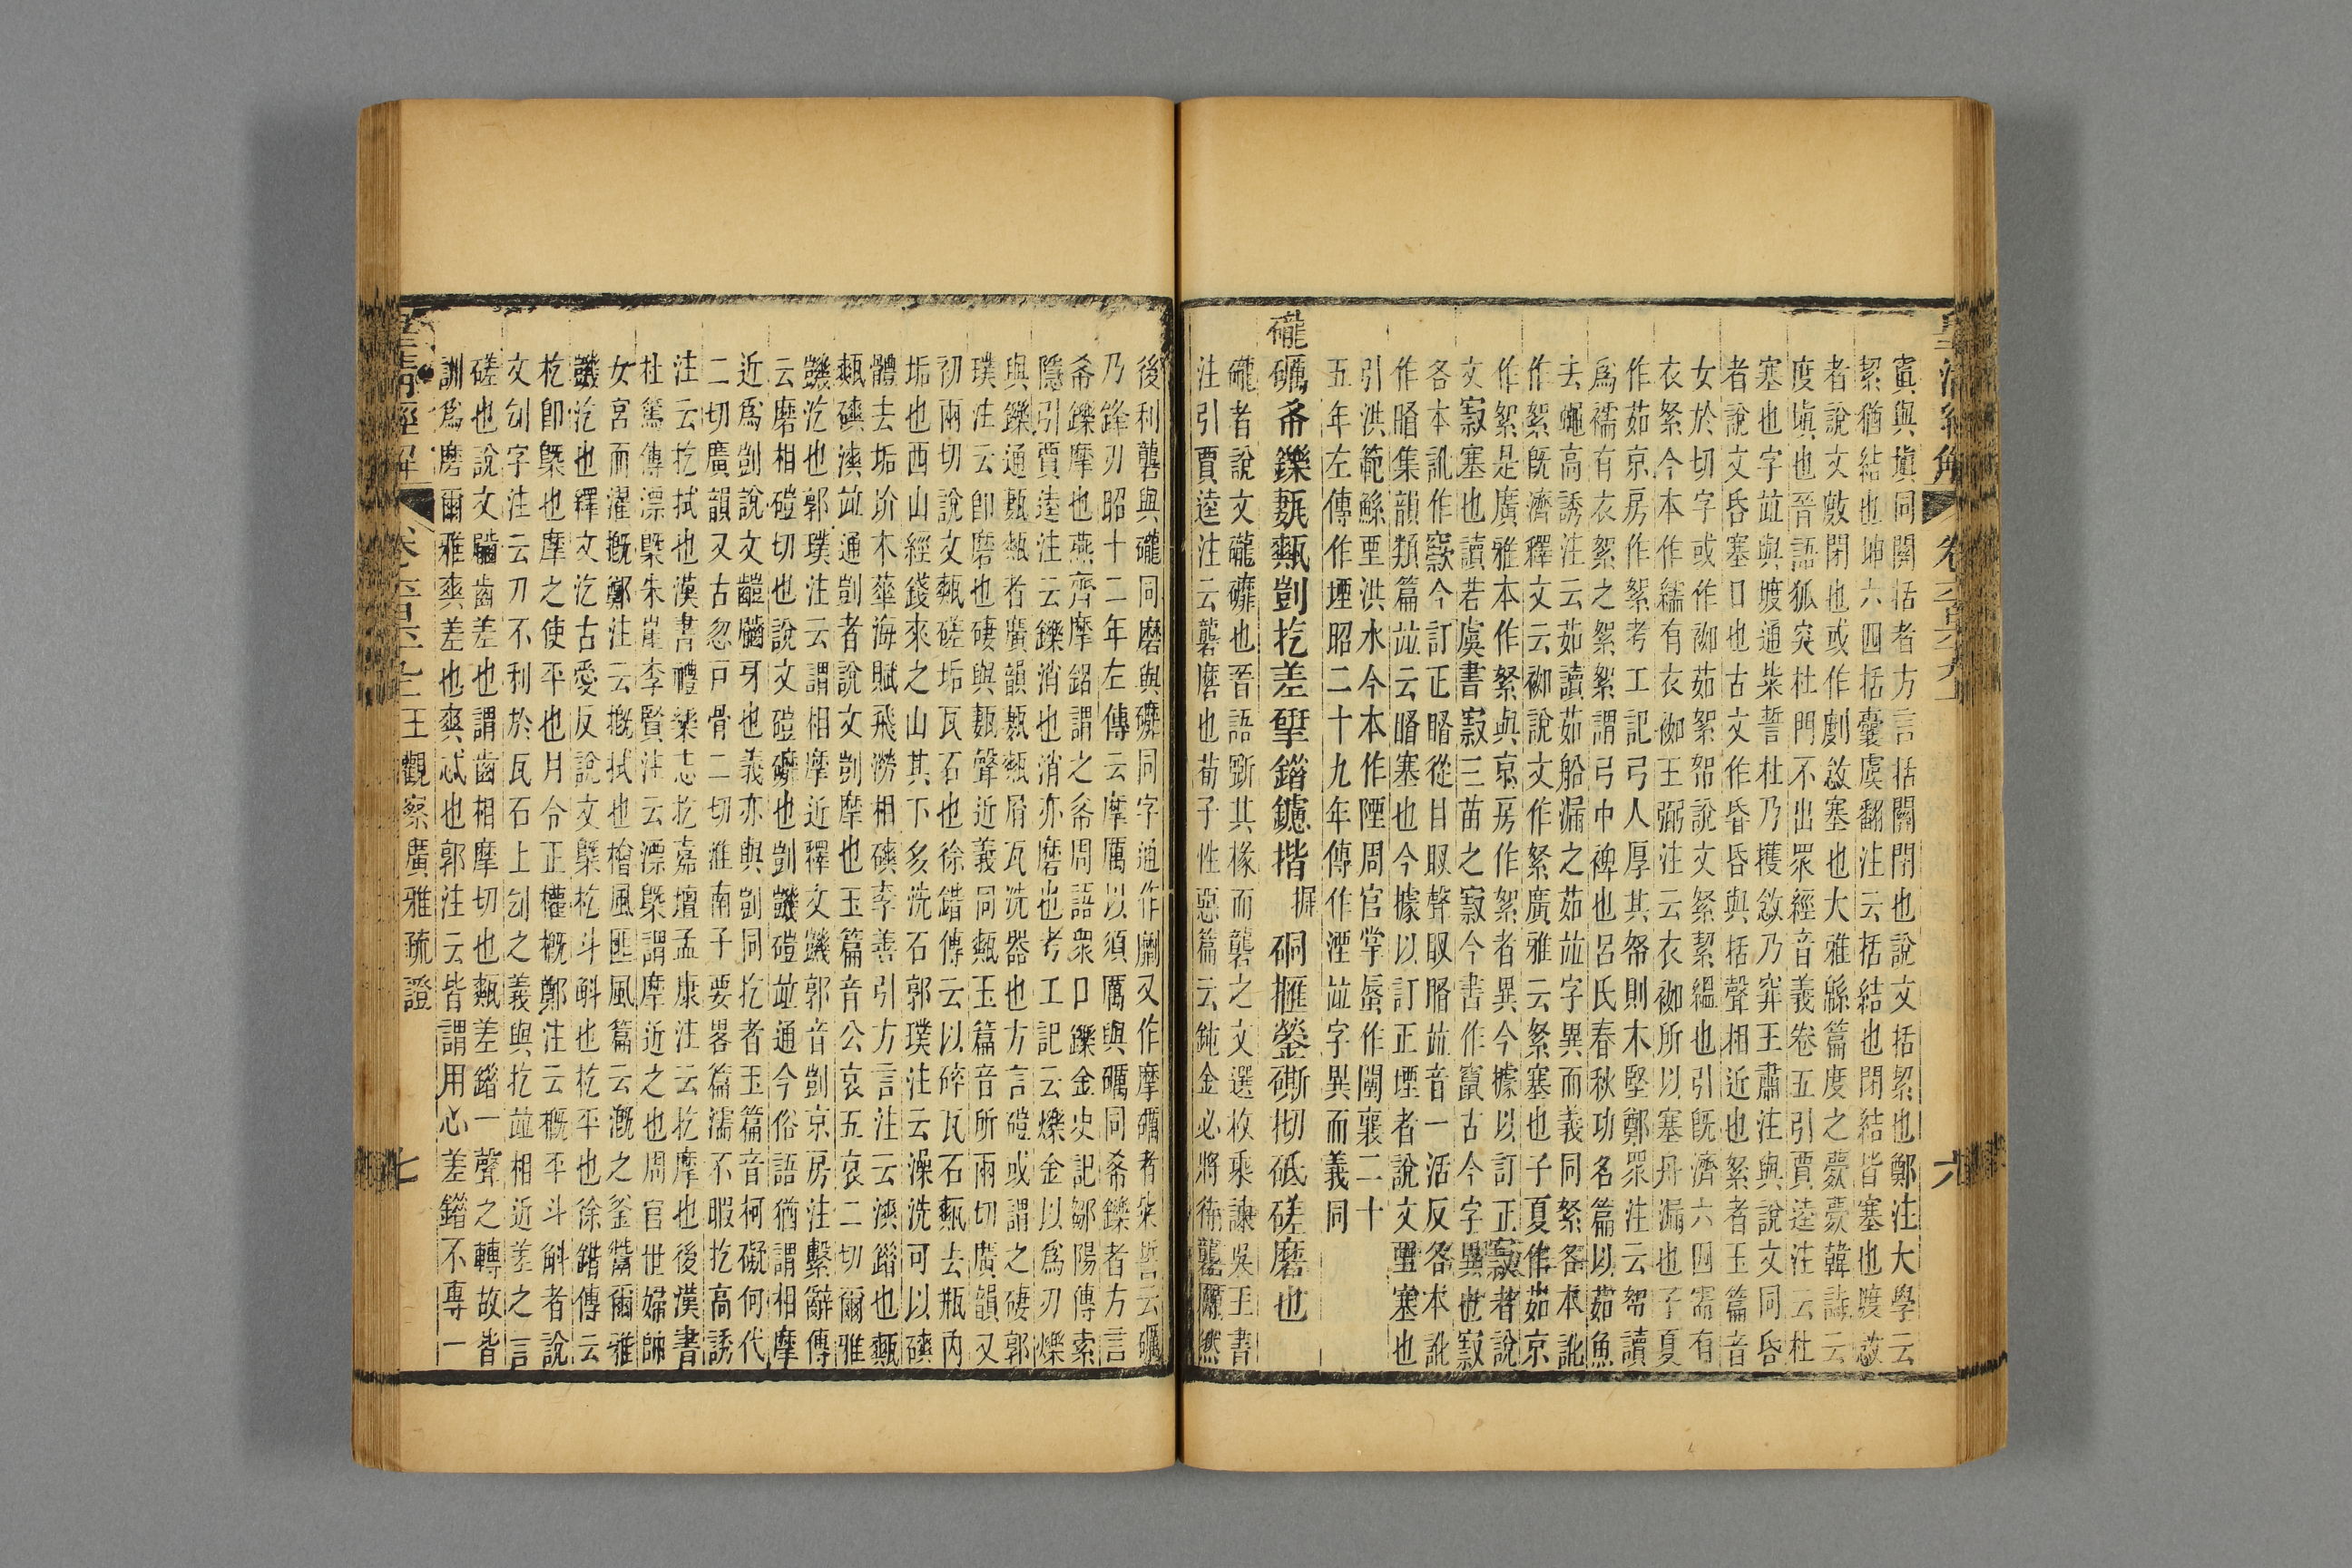 窴與塡同關括者方言括關閉也說文括絜也鄭注大學云
絜猶結也坤六四括囊虞翻注云括結也閉結皆塞也㪫敜
者說文㪫閉也或作劇敜塞也大雅緜篇度之薨薨韓詩云
度塡也晉語狐突杜門不出眾經音義卷五引賈逵注云杜
塞也字竝與㪫通柴誓杜乃擭敜乃穽王肅注與說文同昏
者說文昏塞口也古文作昏昏與括聲相近也絮者玉篇音
女於切字或作袽茹絮帤說文絮絜縕也引旣濟六四需有
衣絮今本作繻有衣袽王弼注云衣袽所以塞舟漏也子夏
作茹京房作絮考工記弓人厚其帤則木堅鄭眾注云帤讀
爲襦有衣絮之絮絮謂弓中裨也呂氏春秋功名篇以茹魚
去蠅高誘注云茹讀茹船漏之茹竝字異而義同絮各本訛
作絮旣濟釋文云袽說文作絮廣雅云絮塞也子夏作茹京
作絮是廣雅本作絮與京房作絮者異今據以訂正㝮者說
文㝮塞也讀若虞書㝮三苗之㝮今書作竄古今字異也㝮
各本訛作窽今訂正䁤從目㕞聲㕞䁤竝音一活反各本訛
作䁤集韻類篇竝云䁤塞也今據以訂正堙者說文垔塞也
引洪範鯀垔洪水今本作陻周官掌蜃作闉襄二十
五年左傳作堙昭二十九年傳作湮竝字異而義同
礲礪㡑鑠甐㼽剴扢差揅鍇鑢揩摡硐摧鎣磃㓞砥磋磨也
礲者說文礲䃺也晉語斲其椽而礱之文選枚乘諫吳王書
注引賈逵注云礱磨也荀子性惡篇云鈍金必將待礱厲然
後利礱與礲同磨與䃺同字通作劘又作摩礪者柴誓云礪
乃鋒刃昭十二年左傳云摩厲以須厲與礪同㡑鑠者方言
㡑鑠摩也燕齊摩鋁謂之㡑周語眾口鑠金史記鄒陽傳索
隱引賈逵注云鑠消也消亦磨也考工記云爍金以爲刃爍
與鑠通甐㼽者廣韻甐㼽屑瓦洗器也方言磑或謂之䃀郭
璞注云卽磨也䃀與甐聲近義同㼽玉篇音所兩切廣韻又
初兩切說文㼽磋垢瓦石也徐鍇傳云以碎瓦石㼽去瓶內
垢也西山經錢來之山其下多洗石郭璞注云澡洗可以磢
體去垢圿木華海賦飛澇相磢李善引方言注云漺錯也㼽
㼽磢漺竝通剴者說文剴摩也玉篇音公哀五哀二切爾雅
鐖汔也郭璞注云謂相摩近釋文鐖郭音剴京房注繫辭傳
云磨相磑切也說文磑䃺也剴鐖磑竝通今俗語猶謂相摩
近爲剴說文齸𪗋牙也義亦與剴同扢者玉篇音柯礙何代
二切廣韻又古忽戶骨二切淮南子要畧篇濡不暇扢高誘
注云扢拭也漢書禮樂志扢嘉壇孟康注云扢摩也後漢書
杜篤傳漂槩朱崖李賢注云漂槩謂摩近之也周官世婦帥
女宮而濯摡鄭注云摡拭也檜風匪風篇云溉之釜鬵爾雅
鐖汔也釋文汔古愛反說文槩杚斗斛也杚平也徐鍇傳云
杚卽槩也摩之使平也月令正權概鄭注云概平斗斛者說
文刉字注云刀不利於瓦石上刉之義與扢竝相近差之言
磋也說文齹齒差也謂齒相摩切也㼽差錯一聲之轉故皆
訓爲磨爾雅爽差也爽忒也郭注云皆謂用心差錯不專一
王觀察廣雅疏證
六
七